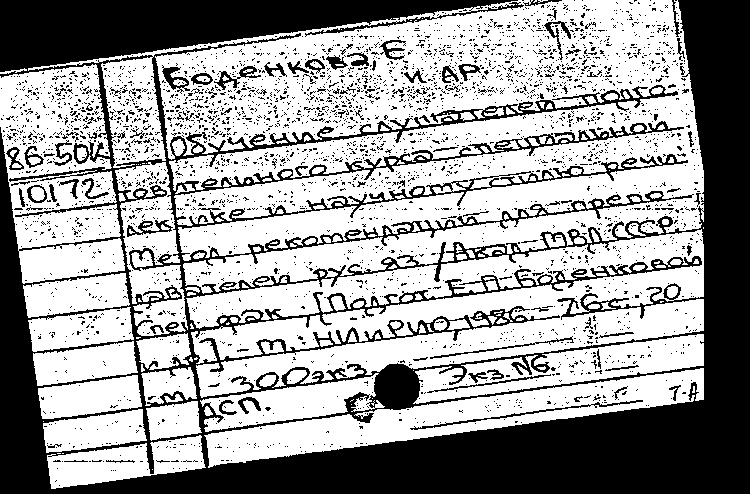 П
Боденкова, Е
и др.
86-50к
10172
Обучение слушателей подго-
товительного курса специальной
лексике и научному стилю речи:
Метод. рекомендации для препо-
давателей рус. яз. / Акад. МВД СССР.
Спец. фак., [Подгот. Е. П. Боденковой
и др.]. - М.: НИиРИО, 1986. - 76 с.; 20
см. - 300 экз. Экз. N6.
ДСП.
Т-А